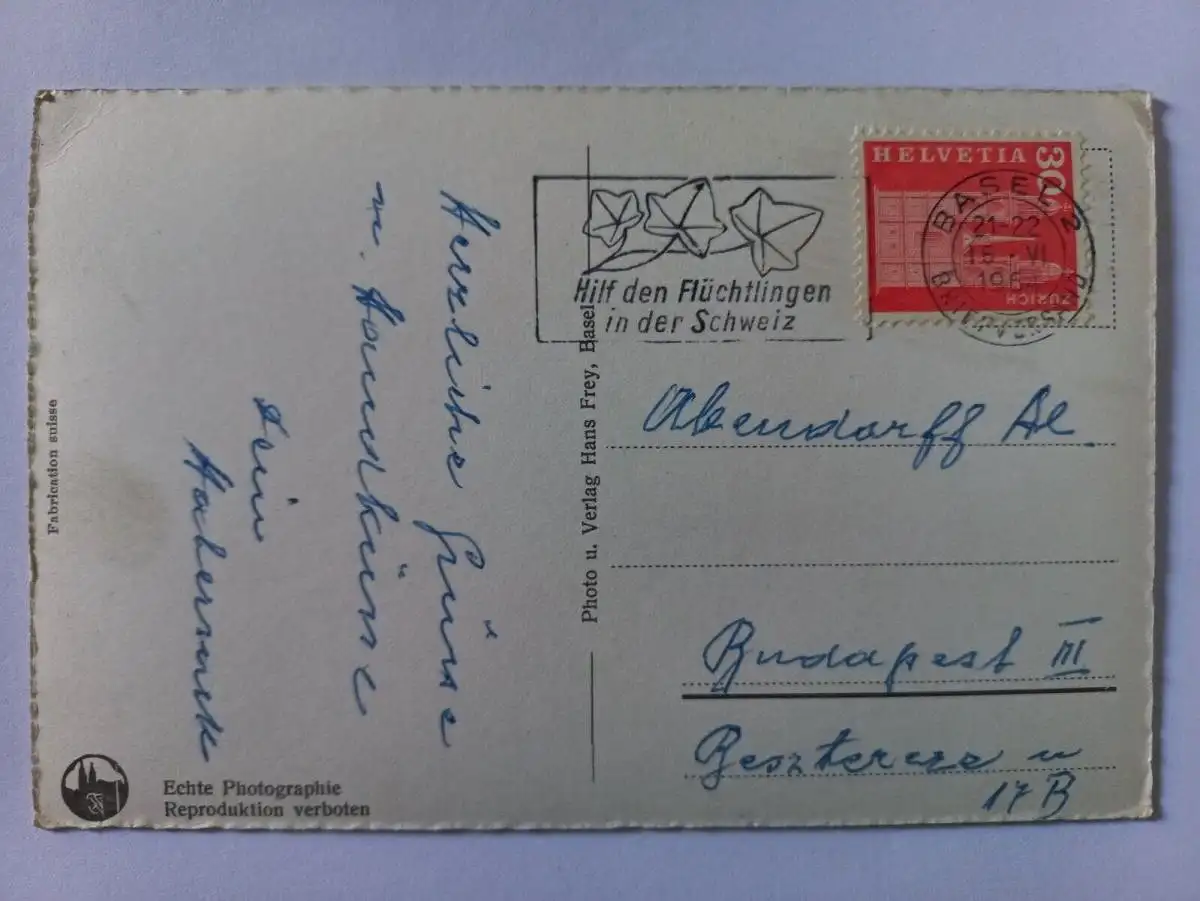 Herzliche Grüsse
u. Handküsse
Dein
HELVETIA
30
ZÜRICH
BASEL 2
21-22
15.-VI
BRIEFVERSAND
Hilf den Flüchtlingen
in der Schweiz
Abendorff Al.
Budapest III
Beszterce u
17 B
Photo u. Verlag Hans Frey, Basel
Fabrication suisse
Echte Photographie
Reproduktion verboten